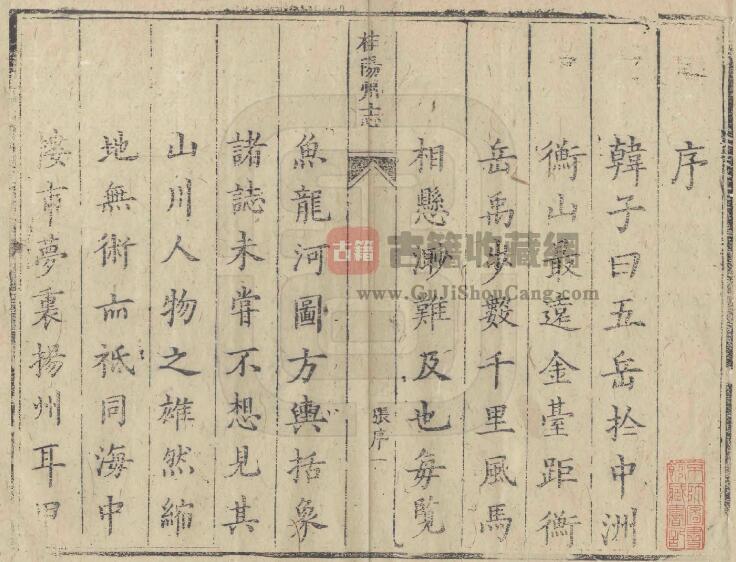 序
韓子曰五岳扵中洲
衡山最遠金臺距衡
岳禹步數千里風馬
相懸渺難及也每覽
桂陽州志
張序一
魚龍河圖方輿括象
諸誌未嘗不想見其
山川人物之雄然縮
地無術而祗同海中
市夢裏揚州耳
古籍
古籍收藏網
www.GuJiShouCang.com